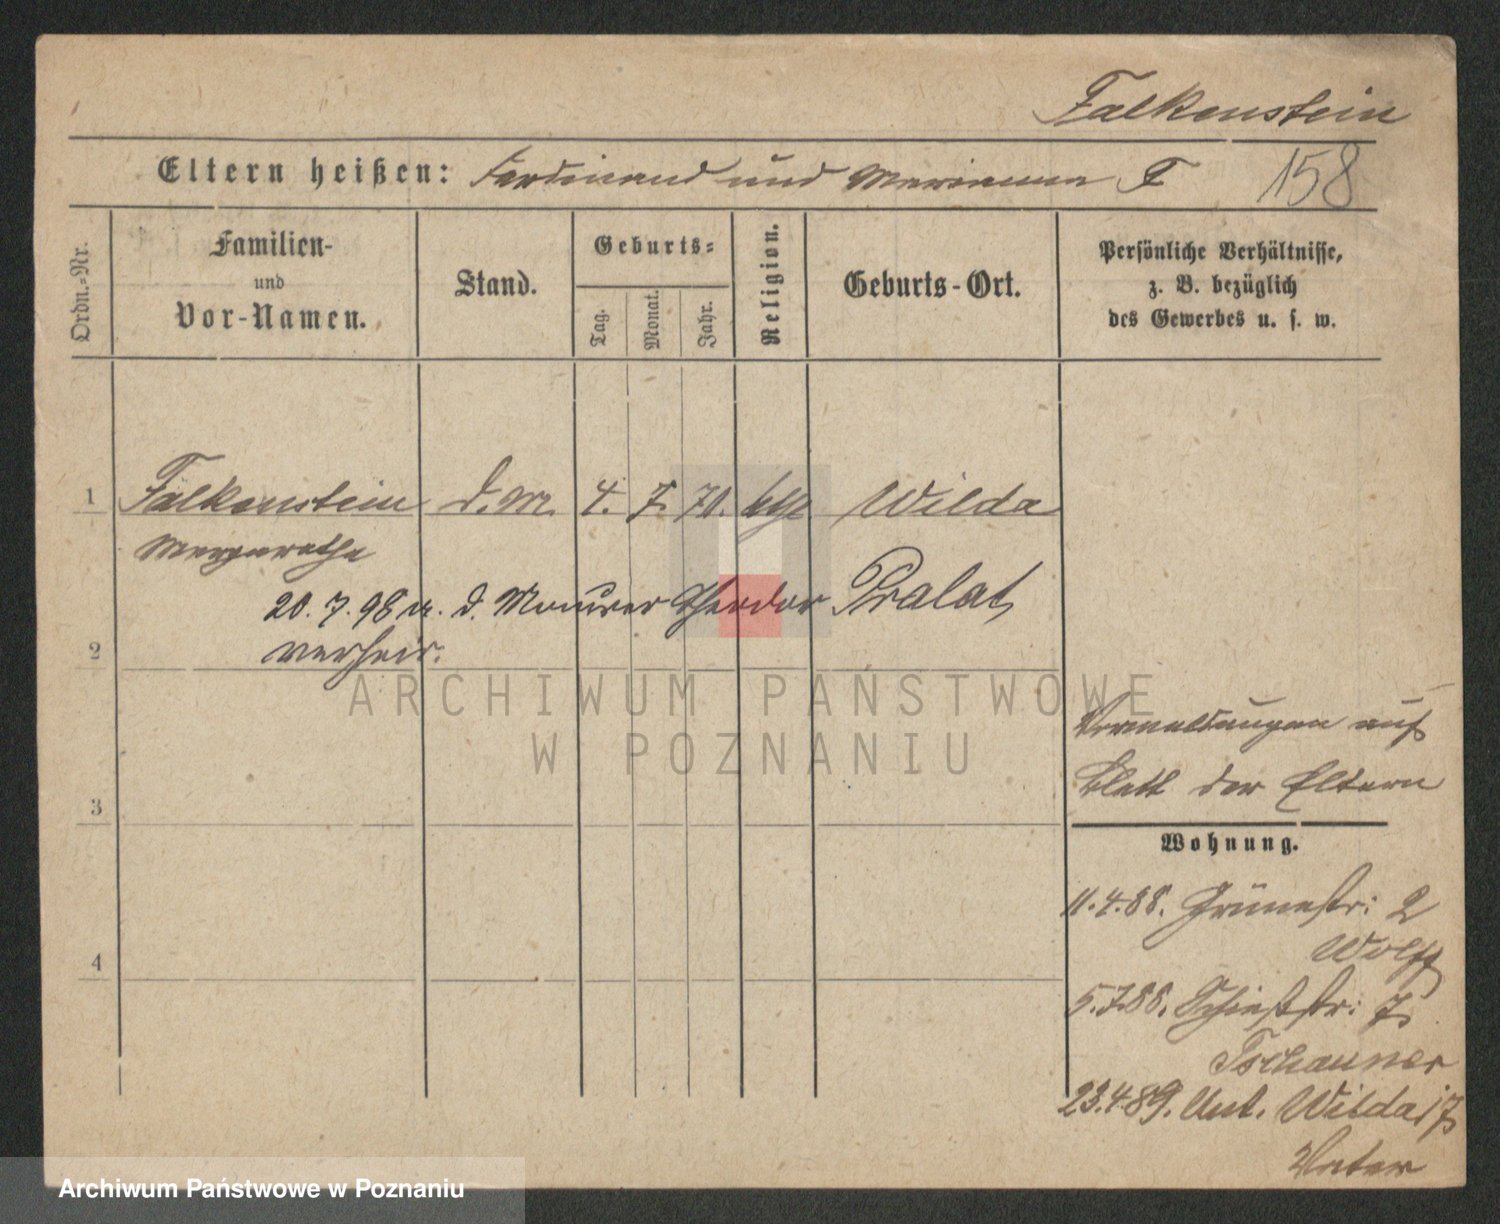 Falkenstein
Eltern heißen: Ferdinand und Marianna F
158
Ordn.-Nr.
Familien-
und
Vor-Namen.
Stand.
Geburts-
Tag.
Monat.
Jahr.
Religion.
Geburts-Ort.
Persönliche Verhältnisse,
z. B. bezüglich
des Gewerbes u. s. w.
1 Falkenstein d. M. 4. 7. 70. kth Wilda
Margarethe
20. 7. 98 a. d. Maurer Theodor Pralat
verheir.
2
ARCHIWUM PAŃSTWOWE
W POZNANIU
Vermeldungen auf
Blatt der Eltern
3
Wohnung.
11.4.88. Grünestr: 2
Wolff
4
5.7.88. Schießstr: 7
Tschauner
23.4.89. Unt. Wilda 17
Vater
Archiwum Państwowe w Poznaniu